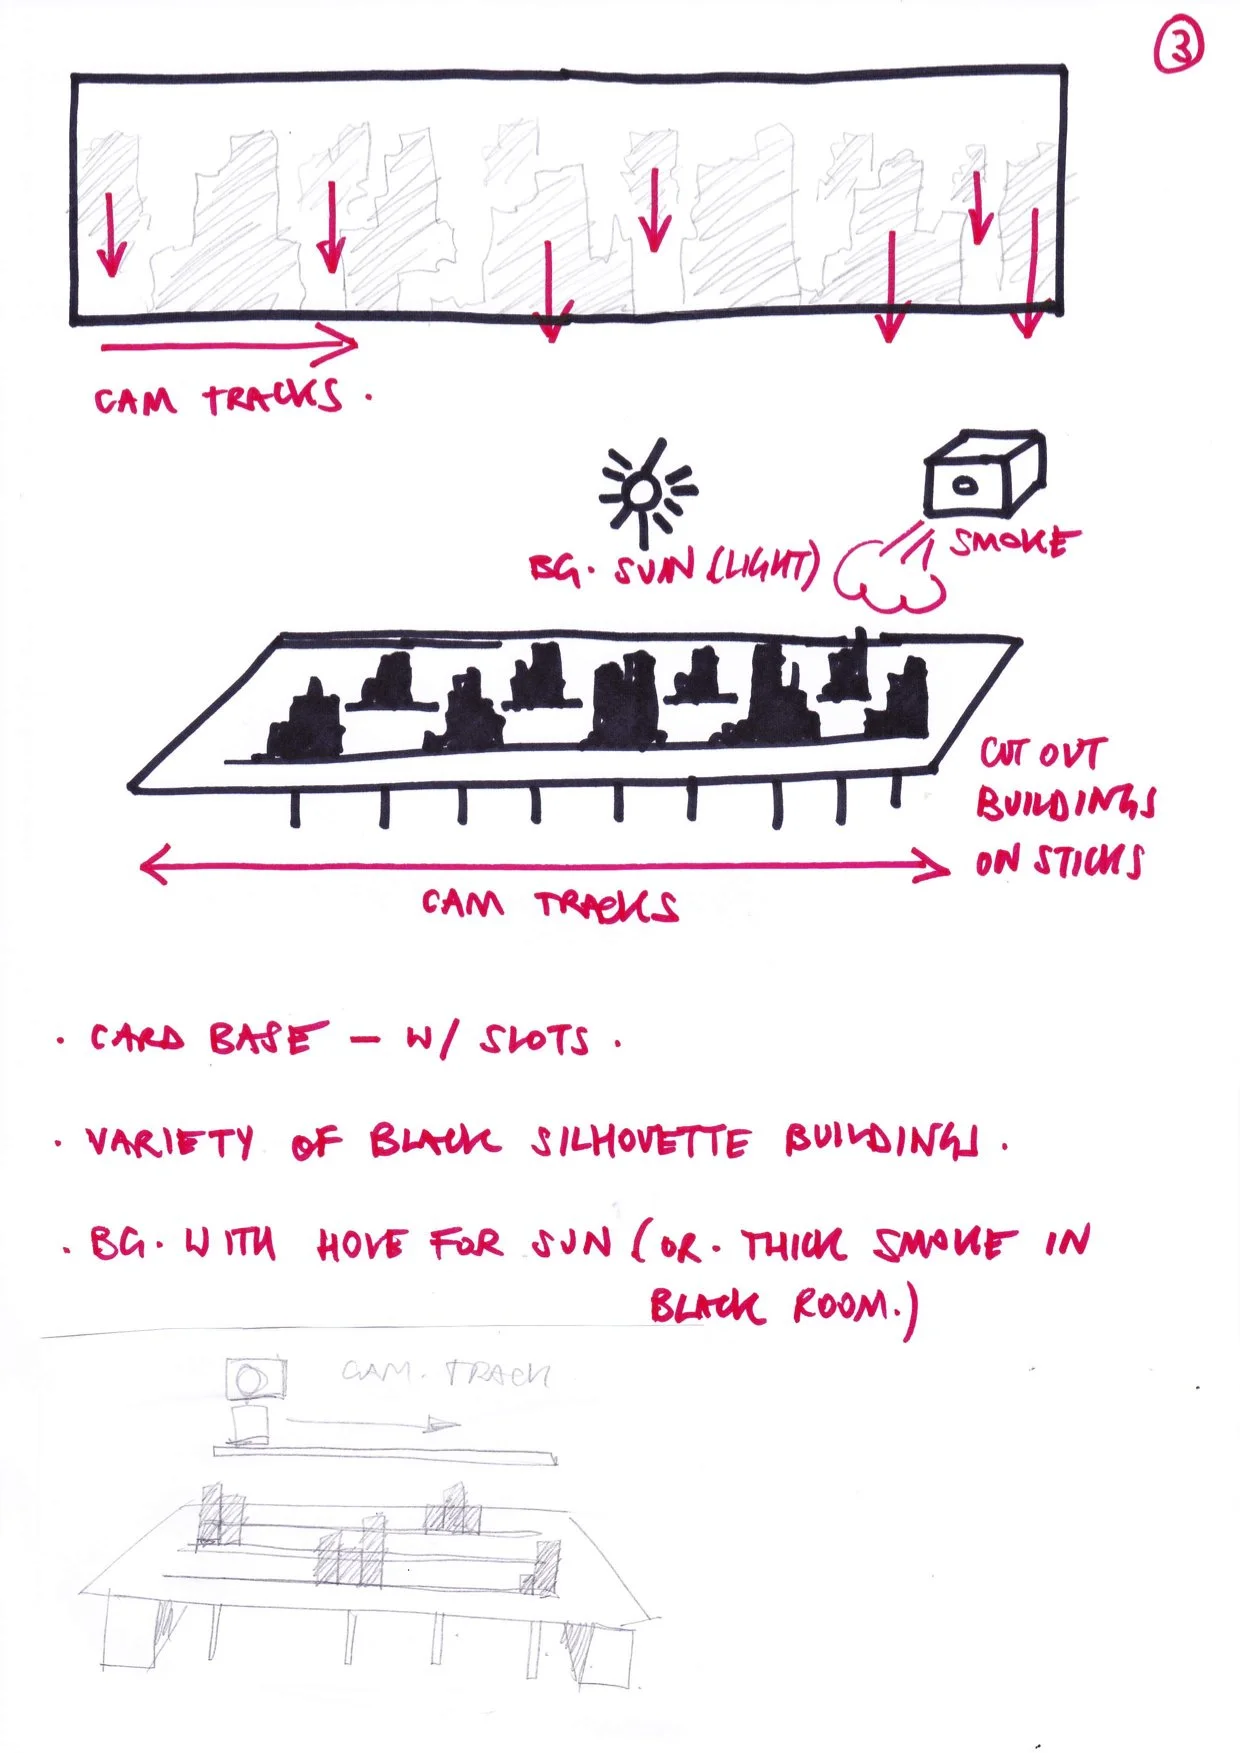 3
CAM TRACKS.
BG. SUN (LIGHT)
SMOKE
CUT OUT
BUILDINGS
ON STICKS
CAM TRACKS
· CARD BASE – W/ SLOTS.
· VARIETY OF BLACK SILHOUETTE BUILDINGS.
· BG. WITH HOLE FOR SUN (OR. THICK SMOKE IN
BLACK ROOM.)
CAM. TRACK